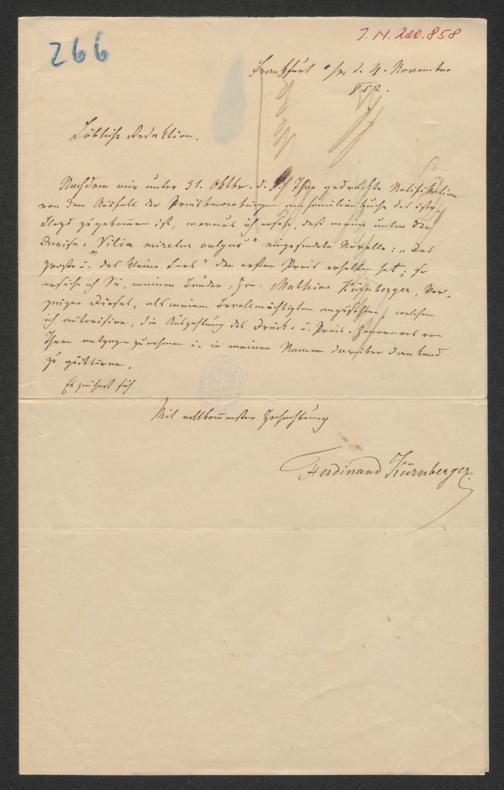 266
I.N. 200.858
Frankfurt a/M d. 4. November
857.
Löbliche Redaktion.
Nachdem mir unter 31. Oktbr. d. J. Ihre gedruckte Notifikation
von dem Ausfall der Preisbewerbung am Familienbuche des österr.
Lloyd zugekommen ist, woraus ich ersehe, daß meine unter der
Devise: " " eingesendete Novelle: „Das
große u. das kleine Loos" den ersten Preis erhalten hat; so
ersuche ich Sie, meinen Bruder, Hrn. Mathias Kürnberger,
dieses, als meinen Bevollmächtigten anzusehen, welchen
ich autorisire, die Auszahlung des Druck- u. Preis-Honorares von
Ihnen entgegenzunehmen u. in meinem Namen darüber dankend
zu quittiren.
Es zeichnet sich
Mit vollkommenster Hochachtung
Ferdinand Kürnberger.